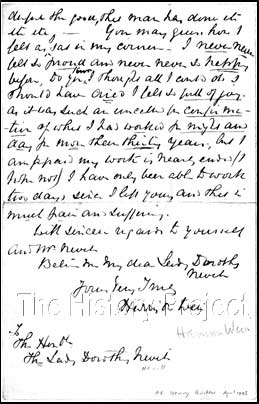 despite the good, this man has done etc
etc etc — You may guess how I
felt as I sat in my corner — I never never
felt so proud and never never so happy
before, do you? I thought all I could do I
should have cried I felt so full of joy.
as it was such an uncalled for confirma=
tion of what I had worked for night and
day for more than thirty years, but I
am afraid my work is nearly ended (I
hope not) I have only been able to work
two days since I left you and this in
much pain and suffering.
With sincere regards to yourself
and Mr Nevill
Believe me My dear Lady Dorothy
Nevill
Yours Very Truly
Harrison Weir
To
The Honble
The Lady Dorothy Nevill
Harrison Weir
Nevill
The History Project